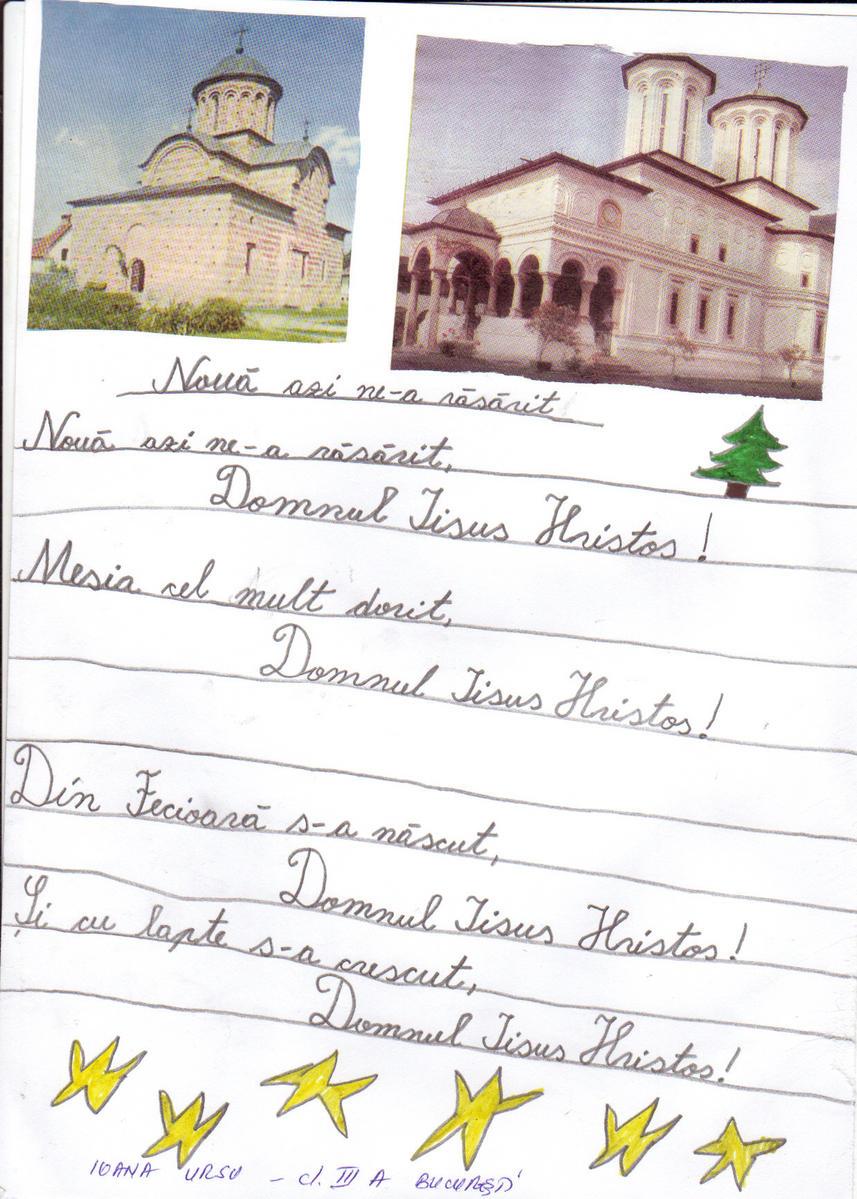 Nouă azi ne-a răsărit
Nouă azi ne-a răsărit,
Domnul Iisus Hristos!
Mesia cel mult dorit,
Domnul Iisus Hristos!
Din Fecioară s-a născut,
Domnul Iisus Hristos!
Și cu lapte s-a crescut,
Domnul Iisus Hristos!
IOANA URSU - cl. III A BUCUREȘTI